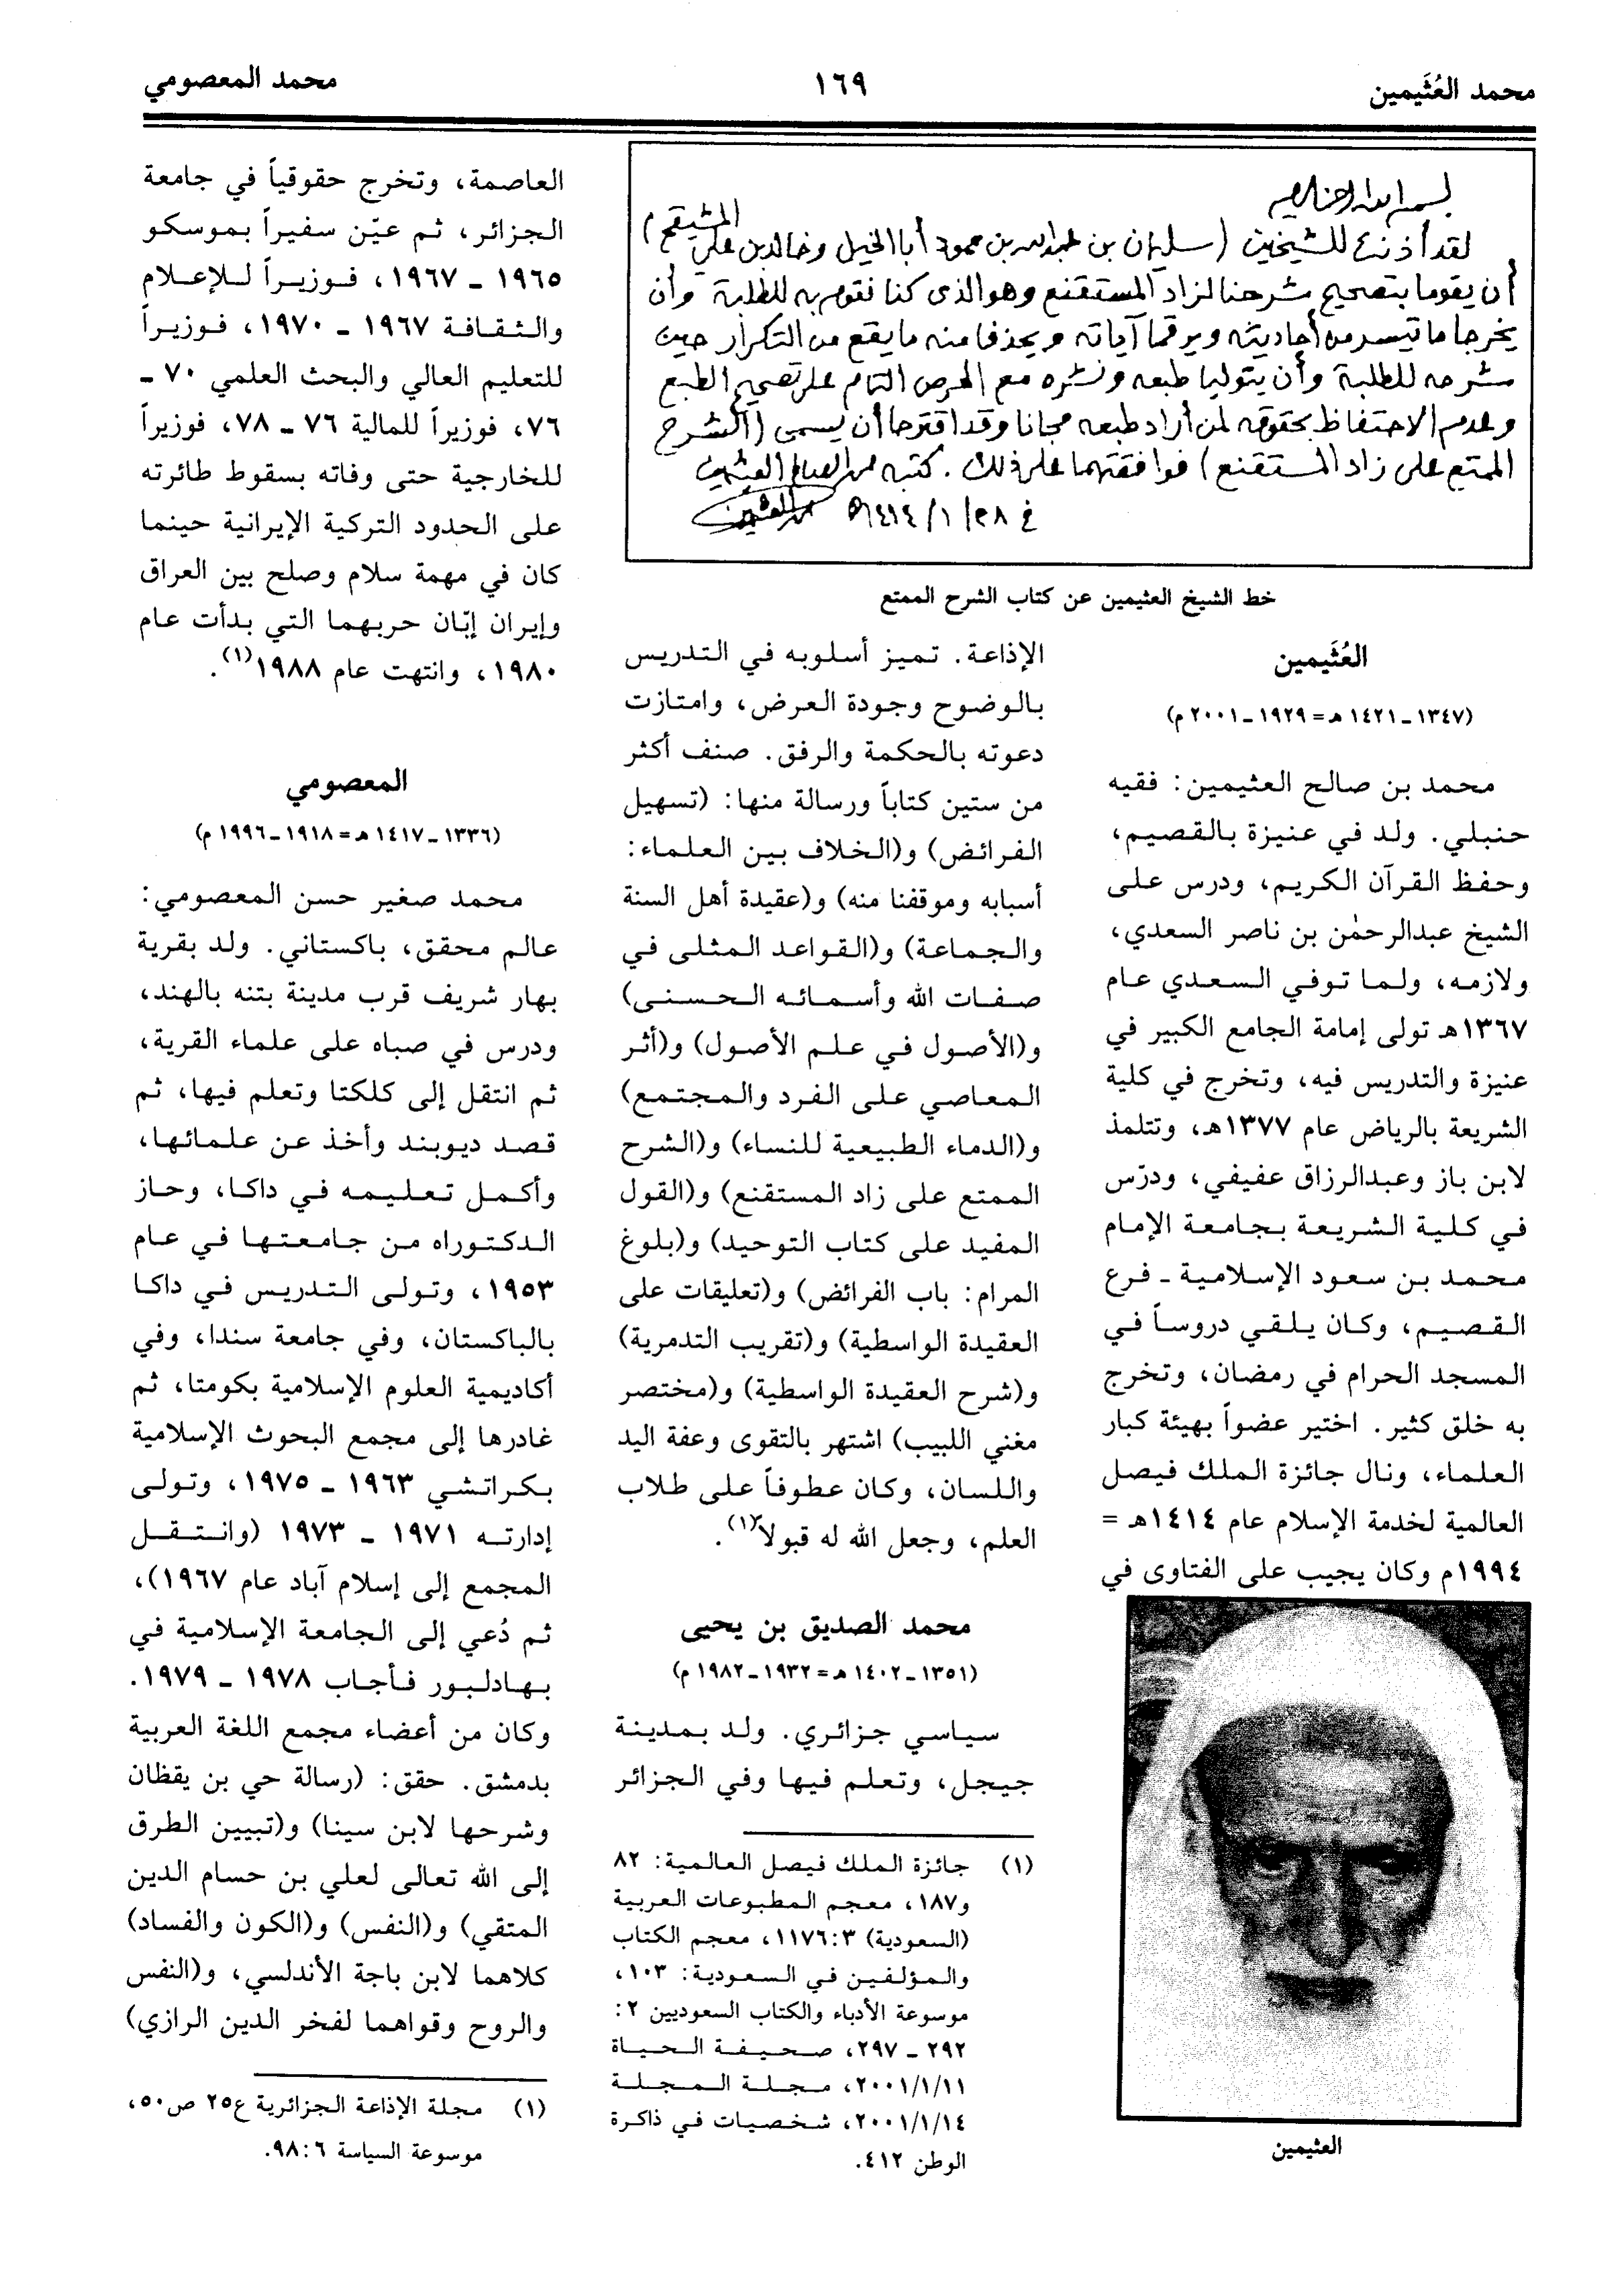 محمد العُثَيمين
١٦٩
محمد المعصومي
لقد أذنت للشيخين (سليمان بن عبدالله بن حمود أبا الخيل وخالد بن علي المشيقح)
أن يقوما بتصحيح شرحنا لزاد المستقنع وهو الذي كنا نقوم به للطلبة وأن
يخرجا ما تيسر من أحاديثه ويرقما آياته ويحذفا منه ما يقع من التكرار حين
شرحه للطلبة وأن يتوليا طبعه ونشره مع الحرص التام على تصحيح الطبع
وعدم الاحتفاظ بحقوقه لمن أراد طبعه مجانا وقد اقترحا أن يسمى (الشرح
الممتع على زاد المستقنع) فوافقتهما على ذلك . كتبه محمد الصالح العثيمين
في ٢٨/ ١/ ١٤١٤هـ
خط الشيخ العثيمين عن كتاب الشرح الممتع
العُثَيمين
(١٣٤٧ـ ١٤٢١ هـ = ١٩٢٩ـ ٢٠٠١ م)
محمد بن صالح العثيمين: فقيه
حنبلي. ولد في عنيزة بالقصيم،
وحفظ القرآن الكريم، ودرس على
الشيخ عبدالرحمٰن بن ناصر السعدي،
ولازمه، ولما توفي السعدي عام
١٣٦٧هـ تولى إمامة الجامع الكبير في
عنيزة والتدريس فيه، وتخرج في كلية
الشريعة بالرياض عام ١٣٧٧هـ، وتتلمذ
لابن باز وعبدالرزاق عفيفي، ودرّس
في كلية الشريعة بجامعة الإمام
محمد بن سعود الإسلامية ـ فرع
القصيم، وكان يلقي دروساً في
المسجد الحرام في رمضان، وتخرج
به خلق كثير. اختير عضواً بهيئة كبار
العلماء، ونال جائزة الملك فيصل
العالمية لخدمة الإسلام عام ١٤١٤هـ =
١٩٩٤م وكان يجيب على الفتاوى في
العثيمين
الإذاعة. تميز أسلوبه في التدريس
بالوضوح وجودة العرض، وامتازت
دعوته بالحكمة والرفق. صنف أكثر
من ستين كتاباً ورسالة منها: (تسهيل
الفرائض) و(الخلاف بين العلماء:
أسبابه وموقفنا منه) و(عقيدة أهل السنة
والجماعة) و(القواعد المثلى في
صفات الله وأسمائه الحسنى)
و(الأصول في علم الأصول) و(أثر
المعاصي على الفرد والمجتمع)
و(الدماء الطبيعية للنساء) و(الشرح
الممتع على زاد المستقنع) و(القول
المفيد على كتاب التوحيد) و(بلوغ
المرام: باب الفرائض) و(تعليقات على
العقيدة الواسطية) و(تقريب التدمرية)
و(شرح العقيدة الواسطية) و(مختصر
مغني اللبيب) اشتهر بالتقوى وعفة اليد
واللسان، وكان عطوفاً على طلاب
العلم، وجعل الله له قبولاً(١).
محمد الصديق بن يحيى
(١٣٥١ـ ١٤٠٢ هـ = ١٩٣٢ـ ١٩٨٢ م)
سياسي جزائري. ولد بمدينة
جيجل، وتعلم فيها وفي الجزائر
(١) جائزة الملك فيصل العالمية: ٨٢
و١٨٧، معجم المطبوعات العربية
(السعودية) ٣: ١١٧٦، معجم الكتاب
والمؤلفين في السعودية: ١٠٣،
موسوعة الأدباء والكتاب السعوديين ٢:
٢٩٢ ـ ٢٩٧، صحيفة الحياة
٢٠٠١/١/١١، مجلة المجلة
٢٠٠١/١/١٤، شخصيات في ذاكرة
الوطن ٤١٢.
العاصمة، وتخرج حقوقياً في جامعة
الجزائر، ثم عيّن سفيراً بموسكو
١٩٦٥ ـ ١٩٦٧، فوزيراً للإعلام
والثقافة ١٩٦٧ ـ ١٩٧٠، فوزيراً
للتعليم العالي والبحث العلمي ٧٠ ـ
٧٦، فوزيراً للمالية ٧٦ ـ ٧٨، فوزيراً
للخارجية حتى وفاته بسقوط طائرته
على الحدود التركية الإيرانية حينما
كان في مهمة سلام وصلح بين العراق
وإيران إبّان حربهما التي بدأت عام
١٩٨٠، وانتهت عام ١٩٨٨(١).
المعصومي
(١٣٣٦ـ ١٤١٧ هـ = ١٩١٨ـ ١٩٩٦ م)
محمد صغير حسن المعصومي:
عالم محقق، باكستاني. ولد بقرية
بهار شريف قرب مدينة بتنه بالهند،
ودرس في صباه على علماء القرية،
ثم انتقل إلى كلكتا وتعلم فيها، ثم
قصد ديوبند وأخذ عن علمائها،
وأكمل تعليمه في داكا، وحاز
الدكتوراه من جامعتها في عام
١٩٥٣، وتولى التدريس في داكا
بالباكستان، وفي جامعة سندا، وفي
أكاديمية العلوم الإسلامية بكومتا، ثم
غادرها إلى مجمع البحوث الإسلامية
بكراتشي ١٩٦٣ ـ ١٩٧٥، وتولى
إدارته ١٩٧١ ـ ١٩٧٣ (وانتقل
المجمع إلى إسلام آباد عام ١٩٦٧)،
ثم دُعي إلى الجامعة الإسلامية في
بهادلبور فأجاب ١٩٧٨ ـ ١٩٧٩.
وكان من أعضاء مجمع اللغة العربية
بدمشق. حقق: (رسالة حي بن يقظان
وشرحها لابن سينا) و(تبيين الطرق
إلى الله تعالى لعلي بن حسام الدين
المتقي) و(النفس) و(الكون والفساد)
كلاهما لابن باجة الأندلسي، و(النفس
والروح وقواهما لفخر الدين الرازي)
(١) مجلة الإذاعة الجزائرية ع٢٥ ص٥٠،
موسوعة السياسة ٦: ٩٨.